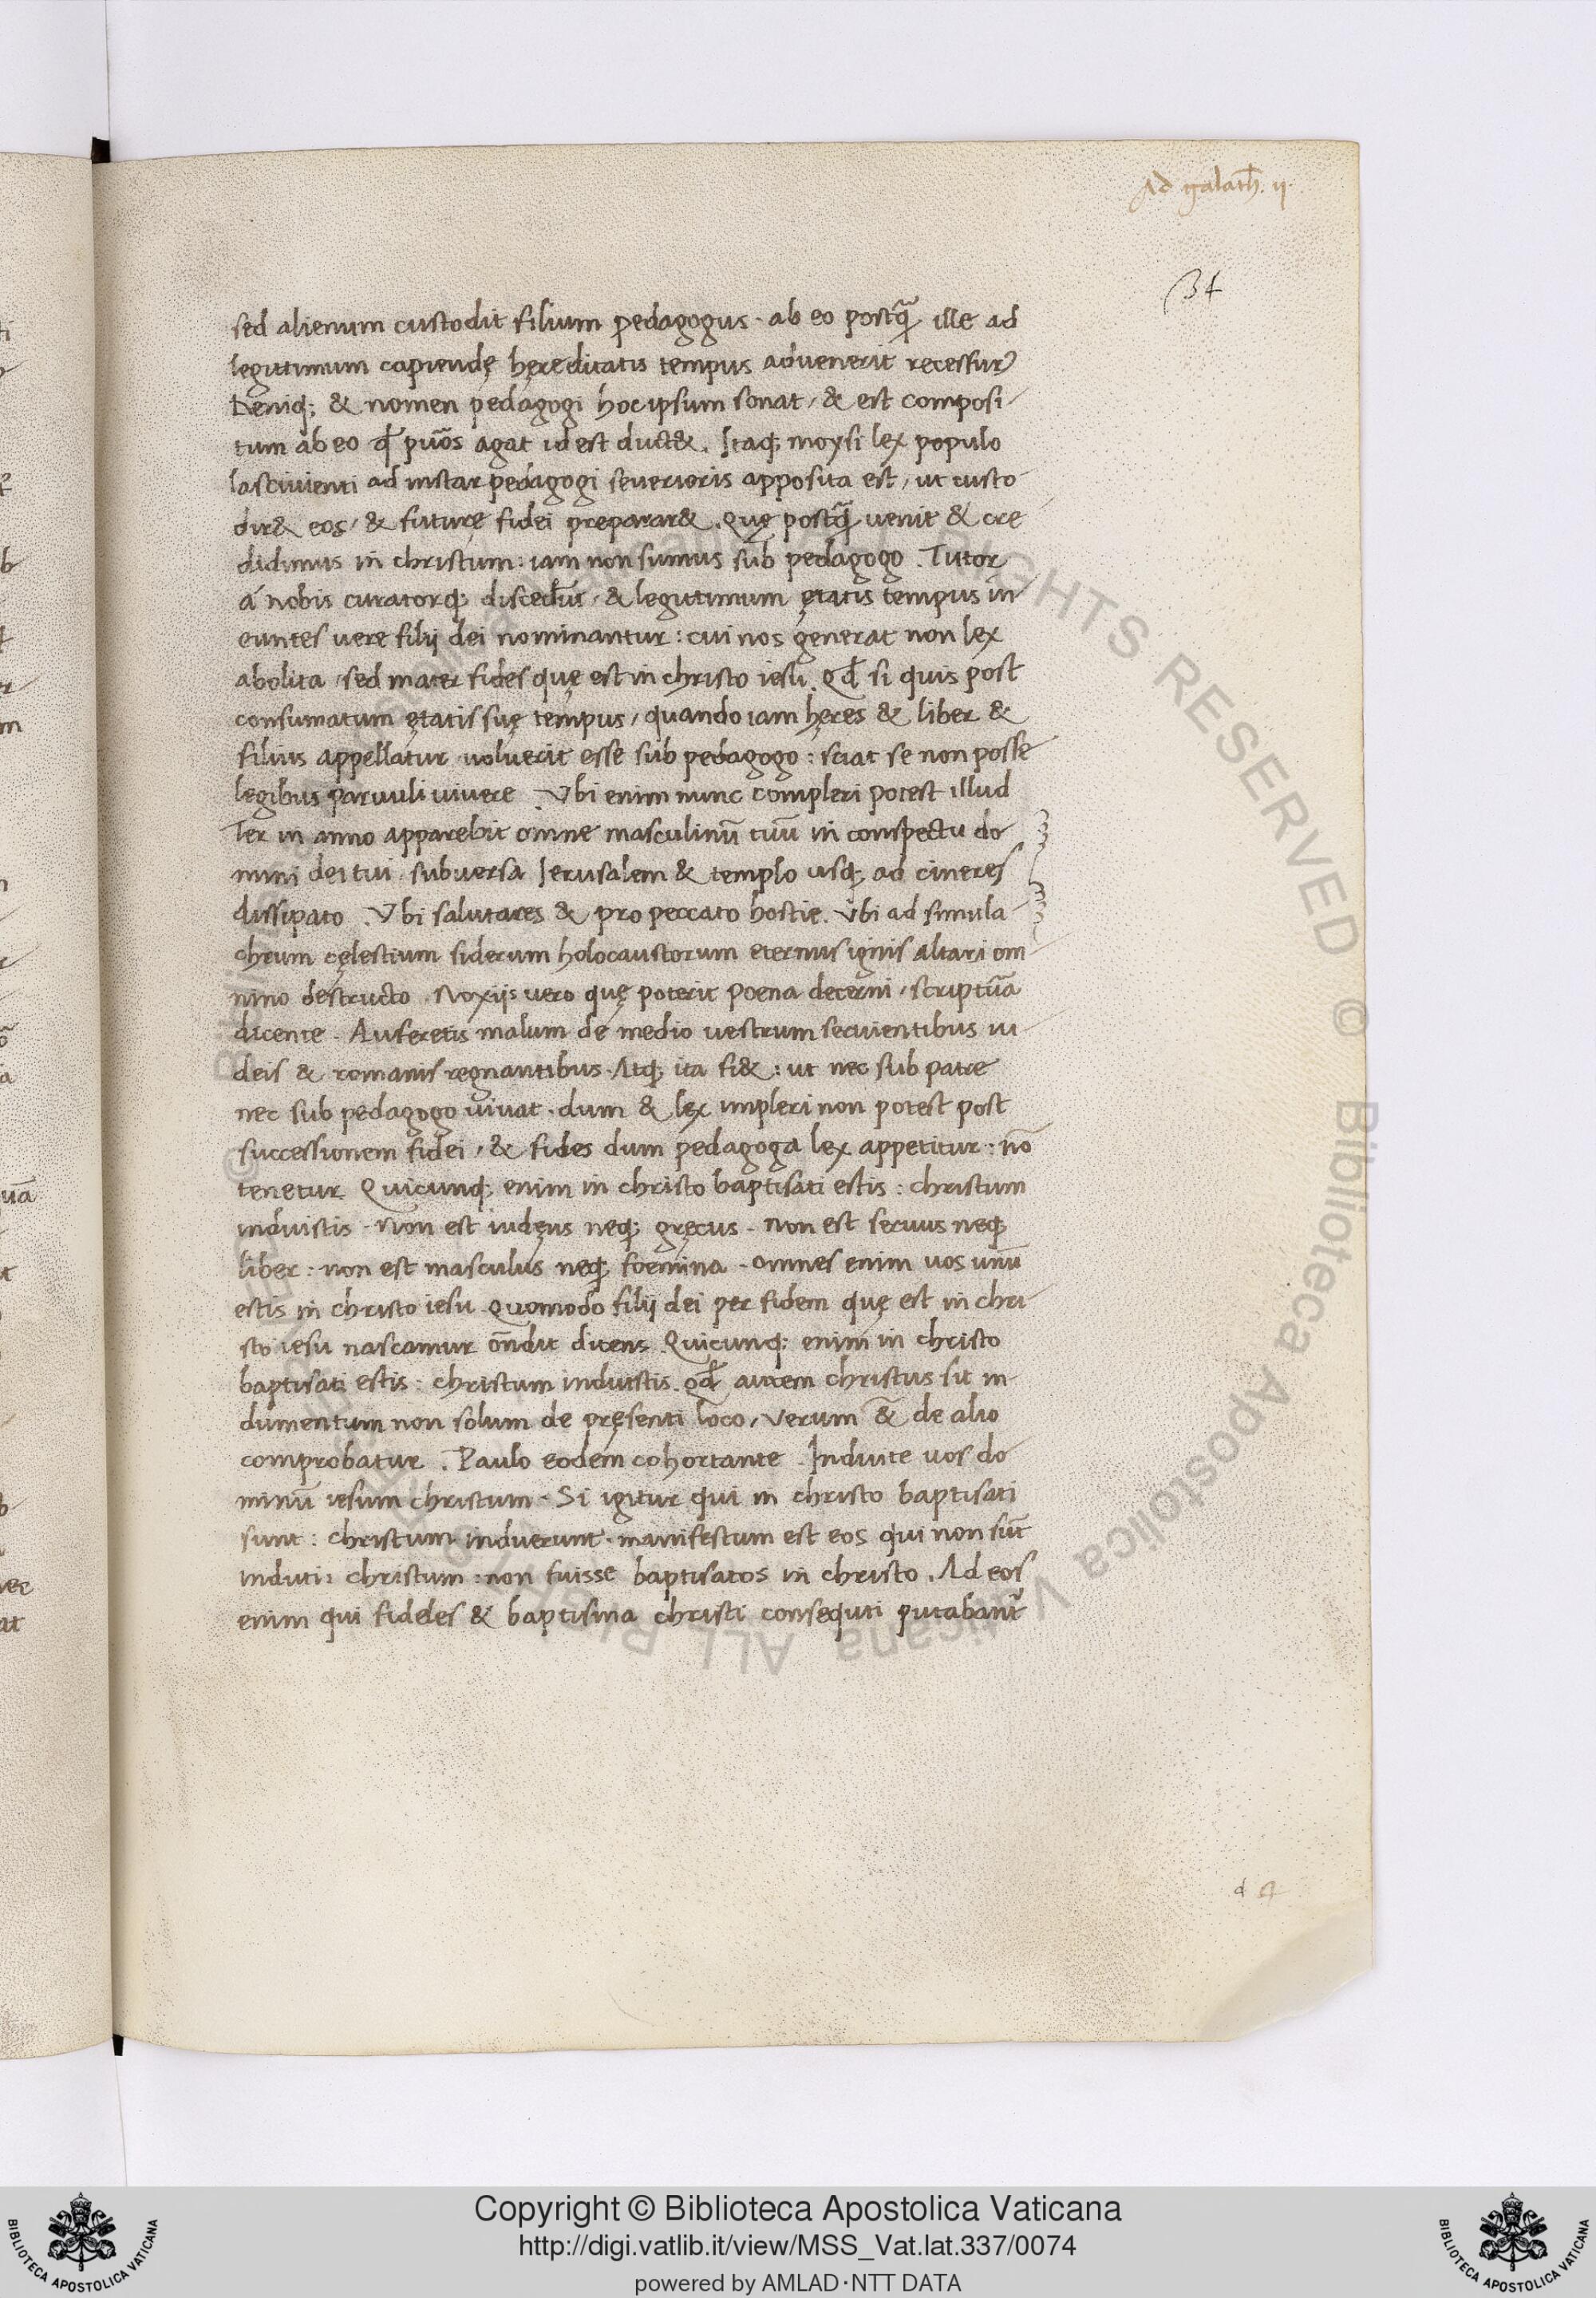 Ad galath̄. ij.
34
sed alienum custodit filium pedagogus. ab eo postq̄ ille ad
legittimum capiendę hęreditatis tempus advenerit recessur᷒
Deniq; & nomen pedagogi hoc ipsum sonat, & est composi-
tum ab eo qđ puōs agat id est duc&. Itaq; moysi lex populo
lascivienti ad instar pedagogi severioris apposita est, ut custo-
dir& eos, & futurę fidei preparar&. Quę postq̄ venit & cre
didimus in christum: iam non sumus sub pedagogo. Tutor
á nobis curatorq; disced̄ut, & legittimum ętatis tempus in
euntes vere filij dei nominantur: cui nos generat non lex
abolita, sed mater fides quę est in christo iesu. Qđ si quis post
consumatum ętatis suę tempus, quando iam hęres & liber &
filius appellatur voluerit esse sub pedagogo: sciat se non posse
legibus parvuli vivere. Vbi enim nunc compleri potest illud
Ter in anno apparebit omne masculinū tuū in conspectu do
mini dei tui. subversa Ierusalem & templo usq; ad cineres
dissipato. Vbi salutares & pro peccato hostie. Vbi ad simula-
chrum cęlestium siderum holocaustorum eternus ignis altari om-
nino destructo. Noxijs vero quę poterit poena decerni, scriptūa
dicente. Auferetis malum de medio vestrum servientibus iu-
deis & romanis regnantibus. Atq; ita fi&: ut nec sub patre
nec sub pedagogo vivat. dum & lex impleri non potest post
successionem fidei, & fides dum pedagoga lex appetitur: nō
tenetur Quicunq; enim in christo baptisati estis: christum
induistis. Non est iudęus neq; gręcus. Non est servus neq;
liber: non est masculus neq; foemina. Omnes enim vos unū
estis in christo iesu. Quomodo filij dei per fidem quę est in chri
sto iesu nascamur ōndit dicens. Quicunq; enim in christo
baptisati estis: christum induistis. qđ autem christus sit in-
dumentum non solum de pręsenti loco, verum & de alio
comprobatur. Paulo eodem cohortante. Induite vos do
minū iesum christum. Si igitur qui in christo baptisati
sunt: christum induerunt. manifestum est eos qui non sūt
induti christum: non fuisse baptisatos in christo. Ad eos
enim qui fideles & baptisma christi consequti putabant᷒
d
© Biblioteca Apostolica Vaticana ALL RIGHTS RESERVED
Copyright © Biblioteca Apostolica Vaticana
http://digi.vatlib.it/view/MSS_Vat.lat.337/0074
powered by AMLAD·NTT DATA
BIBLIOTECA APOSTOLICA VATICANA
BIBLIOTECA APOSTOLICA VATICANA